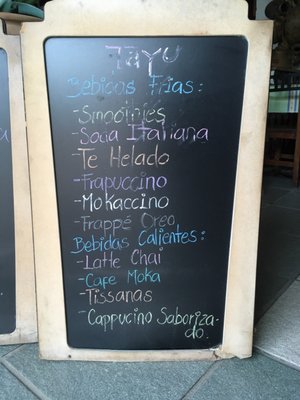 TAYU
Bebidas Frias:
-Smoothies
-Soda Italiana
-Te Helado
-Frapuccino
-Mokaccino
-Frappé Oreo
Bebidas Calientes:
-Latte Chai
-Cafe Moka
-Tissanas
-Cappucino Saboriza-
do.